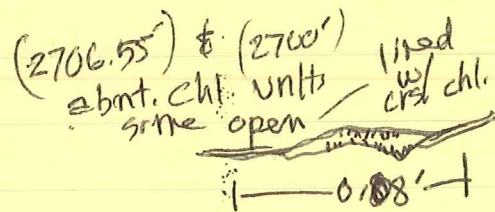 (2706.55') & (2700')
abnt. chl vnlts
some open
lined
w/
crsl chl.
0.08'